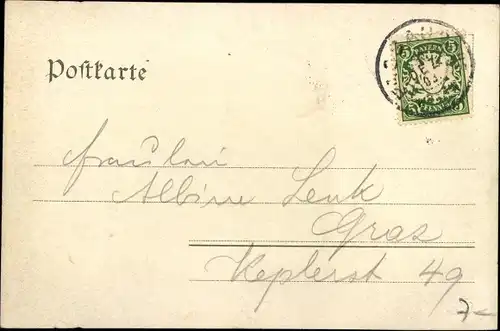 Postkarte
5 BAYERN 5
PFENNIG
Fräulein
Albine Lenk
Graz
Keplerst 49